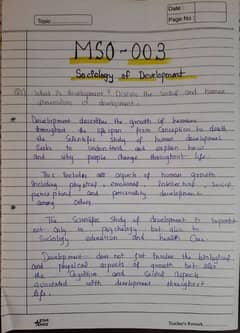 Date :
Page No :
Topic
MSO-003
Sociology of Development
Q1) What is development? Discuss the social and human
dimensions of development.
* Development describes the growth of humans
throughout the lifespan, from conception to death
the scientific study of human development
seeks to understand and explain how
and why people change throughout life.
This includes all aspects of human growth
including physical, emotional, intellectual, social,
perceptual and personality development
among others.
The Scientific study of development is important
not only to psychology but also to
Sociology education and health care.
Development does not just involve the biological
and physical aspects of growth but also
the cognitive and social aspects
associated with development throughout
life.
Teacher's Remark